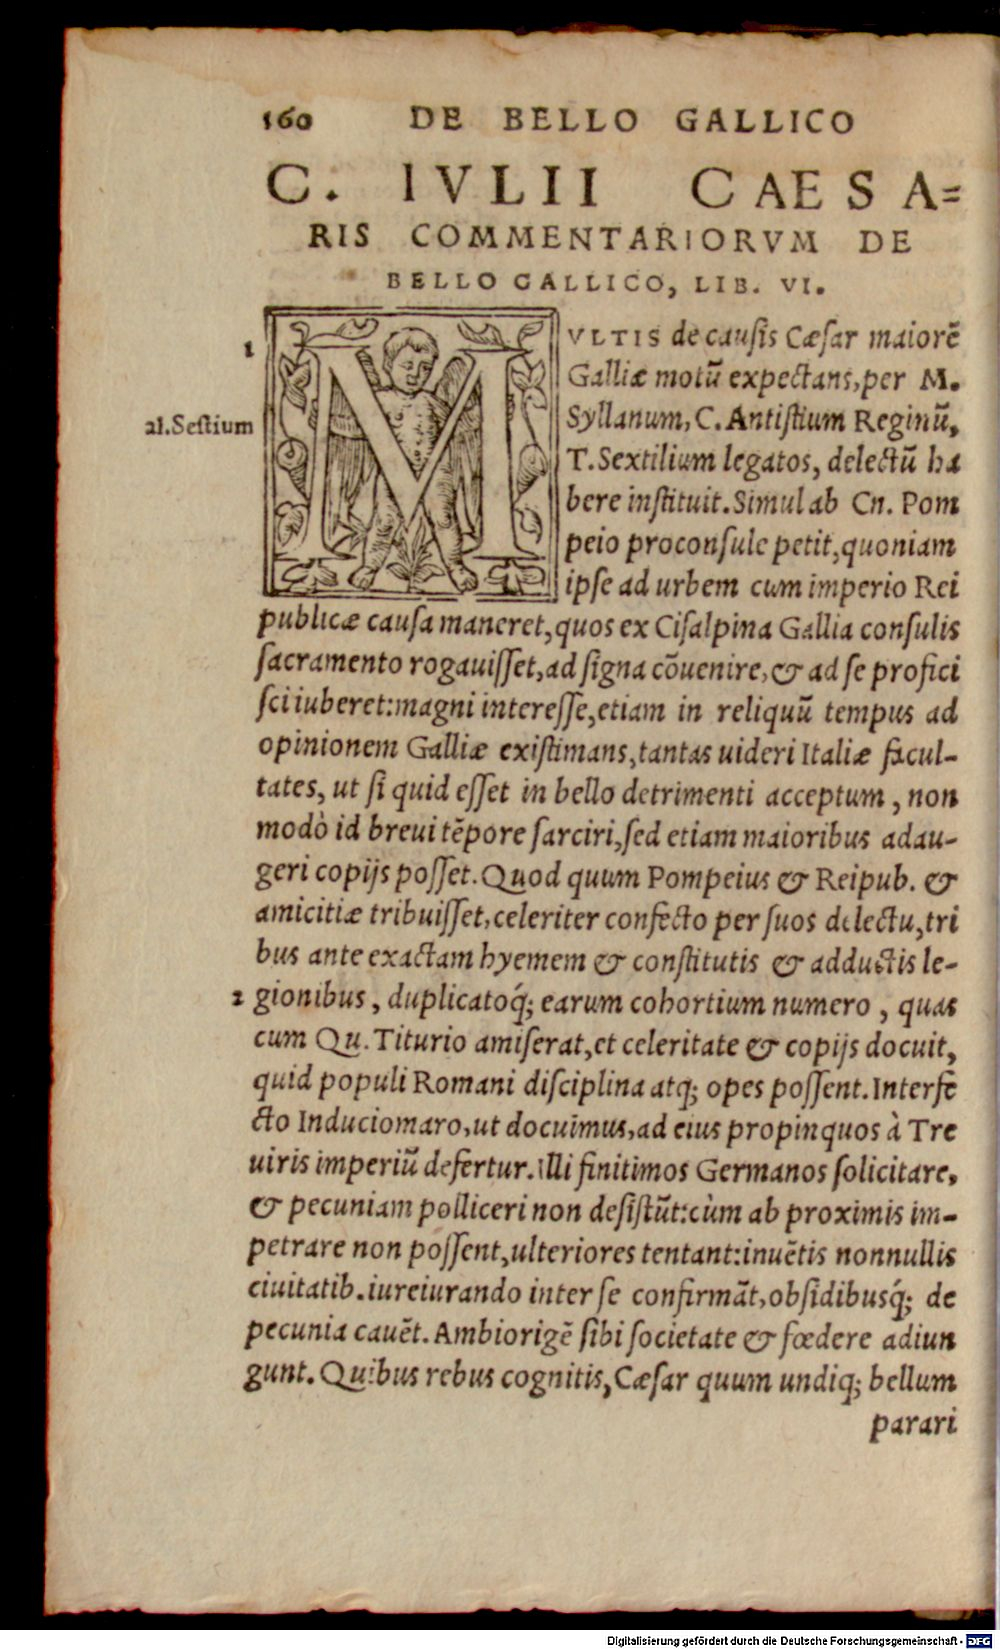 160 DE BELLO GALLICO
C. IVLII CAESA=
RIS COMMENTARIORVM DE
BELLO GALLICO, LIB. VI.
1
MVLTIS de cauſis Cæſar maiorē
Galliæ motū expectans, per M.
al. Seſtium
Syllanum, C. Antiſtium Reginū,
T. Sextilium legatos, delectū ha
bere inſtituit. Simul ab Cn. Pom
peio proconſule petit, quoniam
ipſe ad urbem cum imperio Rei
publicæ cauſa maneret, quos ex Ciſalpina Gallia conſulis
ſacramento rogauiſſet, ad ſigna cōuenire, & ad ſe profici
ſci iuberet: magni intereſſe, etiam in reliquū tempus ad
opinionem Galliæ exiſtimans, tantas uideri Italiæ facul-
tates, ut ſi quid eſſet in bello detrimenti acceptum, non
modò id breui tēpore ſarciri, ſed etiam maioribus adau-
geri copijs poſſet. Quod quum Pompeius & Reipub. &
amicitiæ tribuiſſet, celeriter confecto per ſuos delectu, tri
bus ante exactam hyemem & conſtitutis & adductis le-
2 gionibus, duplicatoq́; earum cohortium numero, quas
cum Qu. Titurio amiſerat, et celeritate & copijs docuit,
quid populi Romani diſciplina atq; opes poſſent. Interfe
cto Induciomaro, ut docuimus, ad eius propinquos à Tre
uiris imperiū defertur. Illi finitimos Germanos ſolicitare,
& pecuniam polliceri non deſiſtūt: cùm ab proximis im-
petrare non poſſent, ulteriores tentant: inuētis nonnullis
ciuitatib. iureiurando inter ſe confirmāt, obſidibusq́; de
pecunia cauēt. Ambiorigē ſibi ſocietate & fœdere adiun
gunt. Quibus rebus cognitis, Cæſar quum undiq; bellum
parari
Digitalisierung gefördert durch die Deutsche Forschungsgemeinschaft - DFG